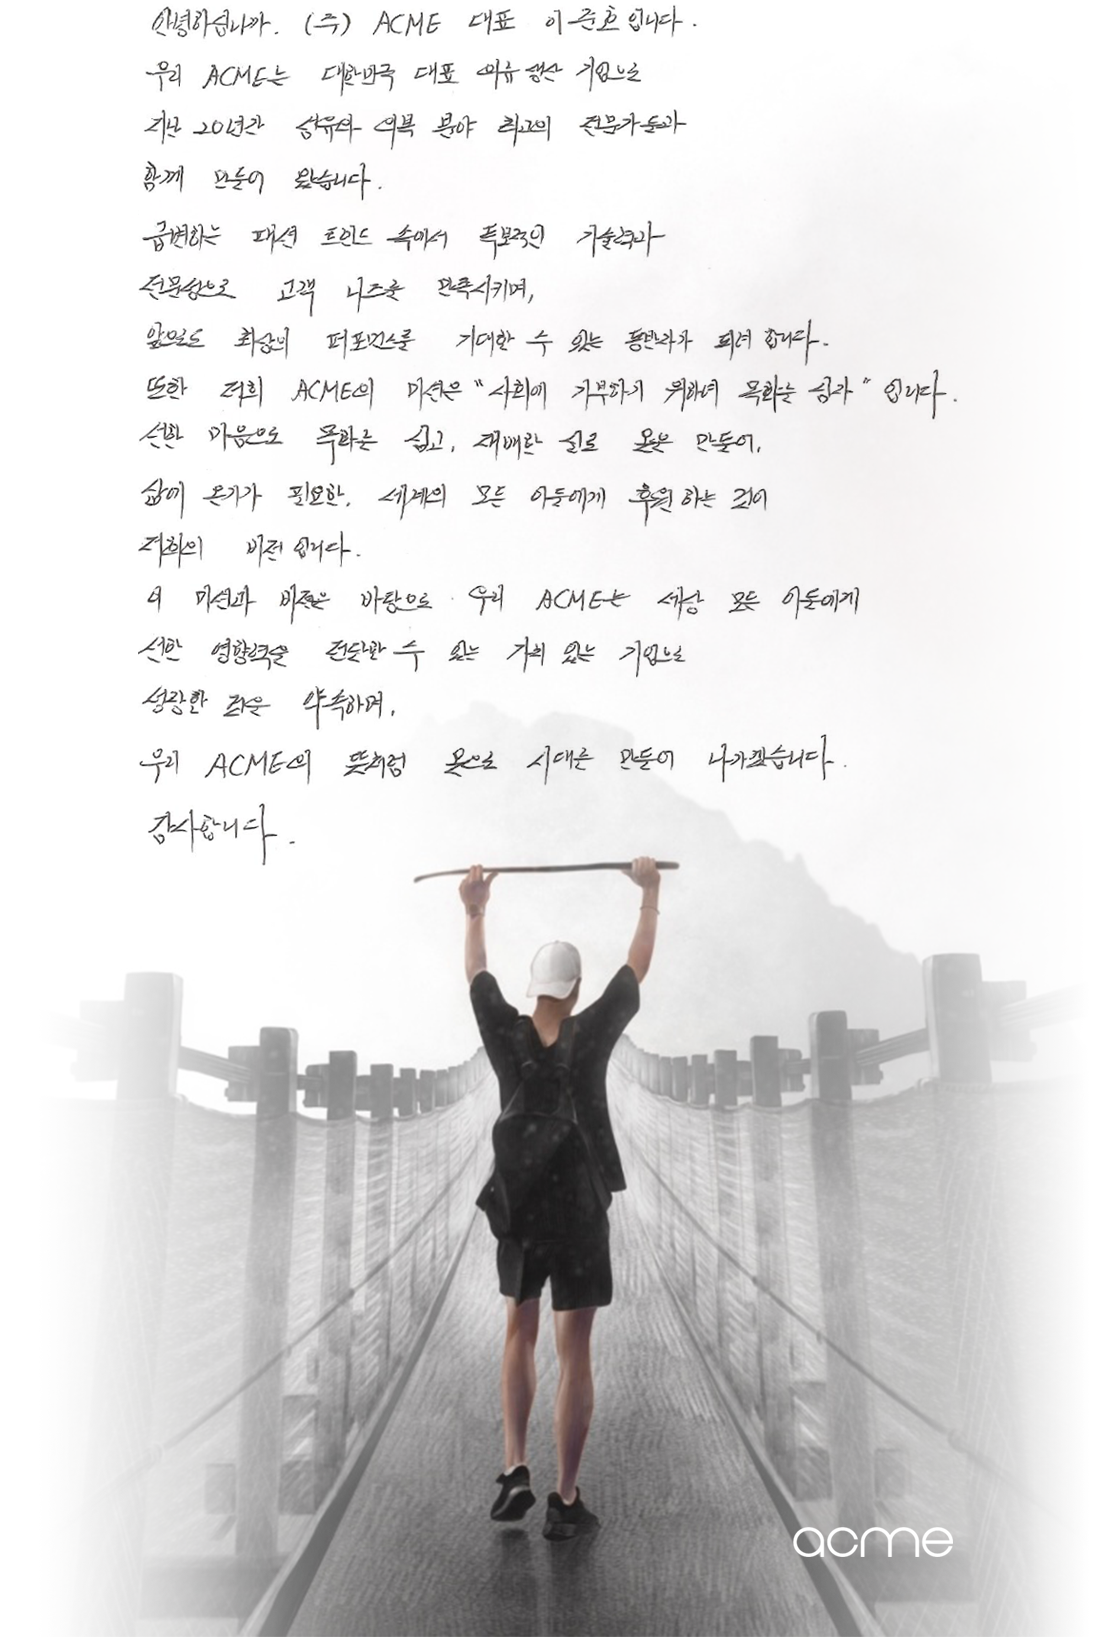 안녕하십니까. (주) ACME 대표 이준호입니다.
우리 ACME는 대한민국 대표 의류 생산 기업으로
지난 20년간 섬유와 의복 분야 최고의 전문가들과
함께 만들어 왔습니다.
급변하는 패션 트렌드 속에서 독보적인 기술력과
전문성으로 고객 니즈를 만족시키며,
앞으로도 최상의 퍼포먼스를 기대할 수 있는 동반자가 되려 합니다.
또한 저희 ACME의 미션은 "사회에 기부하기 위하여 목화를 심자" 입니다.
선한 마음으로 목화를 심고, 재배한 실로 옷을 만들어,
삶에 온기가 필요한, 세계의 모든 이들에게 후원하는 것이
저희의 비전입니다.
이 미션과 비전을 바탕으로 우리 ACME는 세상 모든 이들에게
선한 영향력을 전달할 수 있는 가치 있는 기업으로
성장할 것을 약속하며,
우리 ACME의 뜻처럼 옷으로 시대를 만들어 나가겠습니다.
감사합니다.
acme